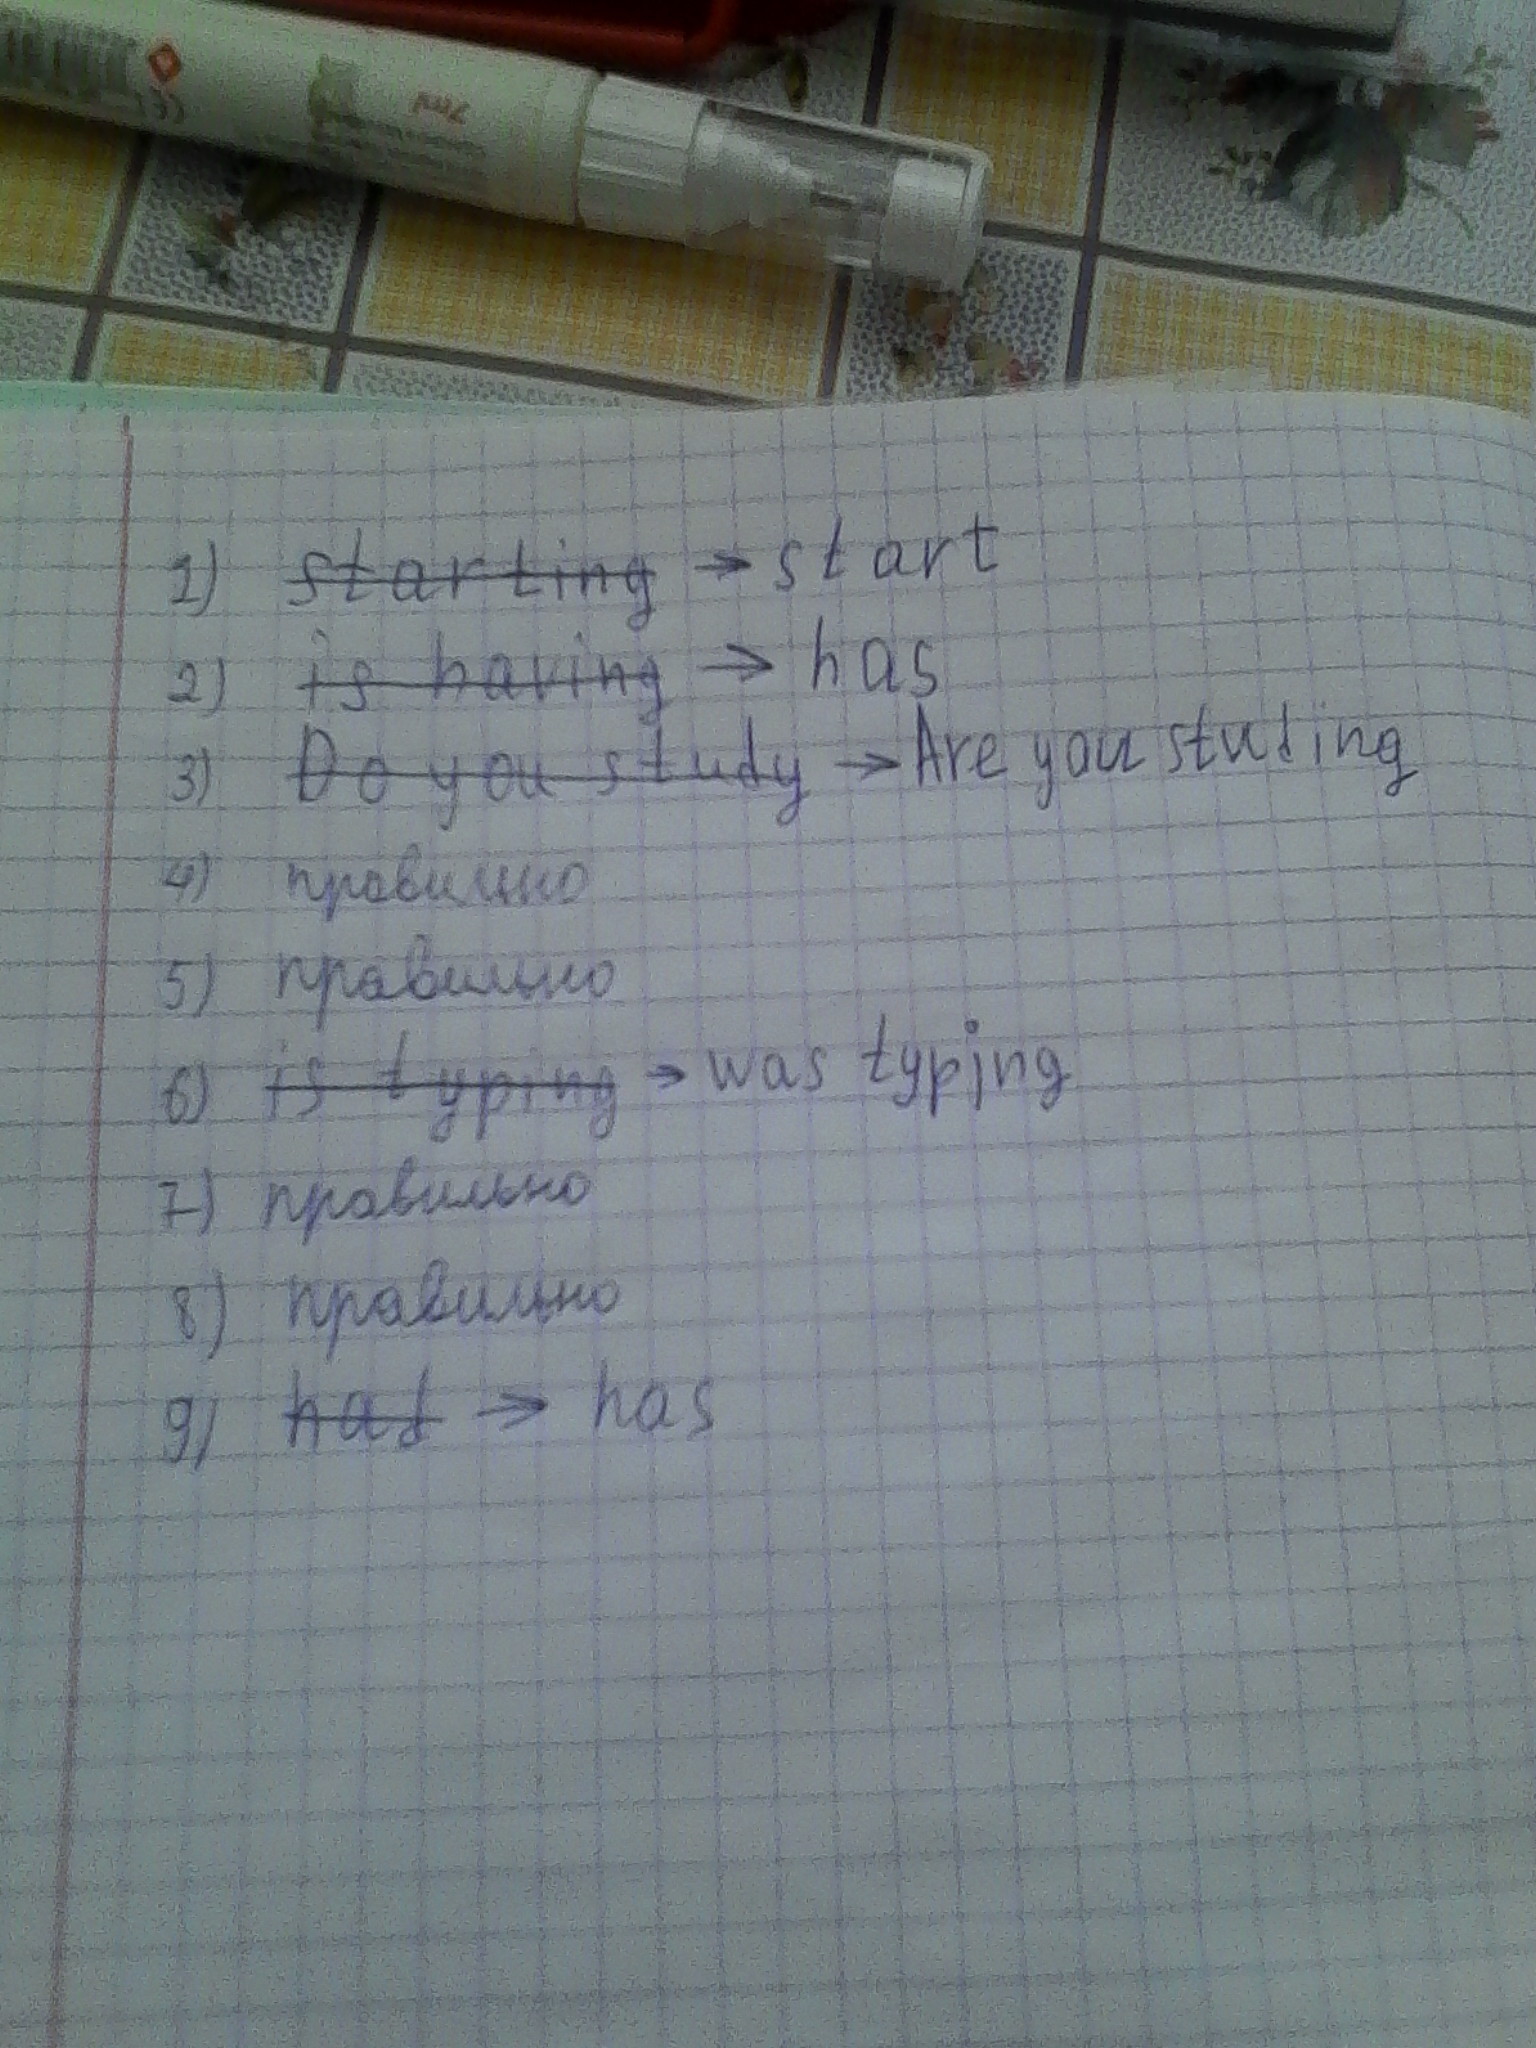 7ml
1) starting → start
2) is having → has
3) Do you study → Are you studing
4) правильно
5) правильно
6) is typing → was typing
7) правильно
8) правильно
9) had → has